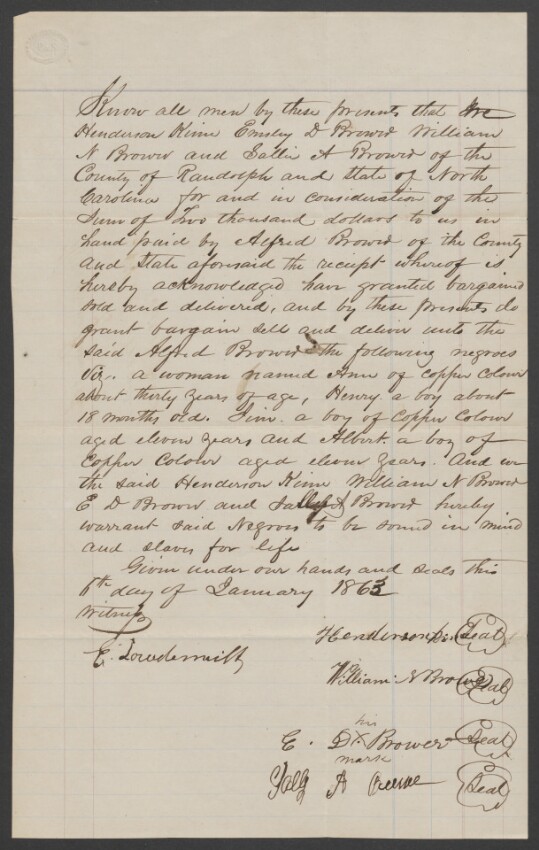 Know all men by these presents that We
Henderson Kime Emsley D Brower William
N Brower and Sallie A Brower of the
County of Randolph and State of North
Carolina for and in consideration of the
Sum of Two thousand dollars to us in
hand paid by Alfred Brower of the County
and State aforesaid the reciept whereof is
hereby acknowledged have granted bargained
sold and delivered, and by these presents do
grant bargain sell and deliver unto the
said Alfred Brower the following negroes
Viz. a woman named Ann of copper colour
about thirty years of age, Henry a boy about
18 months old. Sim a boy of Copper Colour
aged eleven years and Albert a boy of
Copper Colour aged eleven years. And we
the said Henderson Kime William N Brower
E D Brower and Brower hereby
warrant said Negroes to be sound in mind
and slaves for life
Given under our hands and seals this
6th day of January 1863
Witness
Henderson Seal
E. Lowdermilk
William N Brower Seal
his
E. D X Brower Seal
mark
A Seal